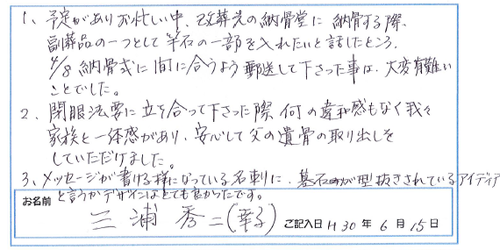 1、予定がありお忙い中、改葬先の納骨堂に納骨する際、
副葬品の一つとして竿石の一部を入れたいと話したところ、
4/8 納骨式に間に合うよう郵送して下さった事は、大変有難い
ことでした。
2、閉眼法要に立ち合って下さった際、何の違和感もなく我々
家族と一体感があり、安心して父の遺骨の取り出しを
していただけました。
3、メッセージが書ける様になっている名刺に、墓石が型抜きされているアイディア
と言うかデザインはとても良かったです。
お名前 三浦秀二(幸子) ご記入日 H30年6月15日